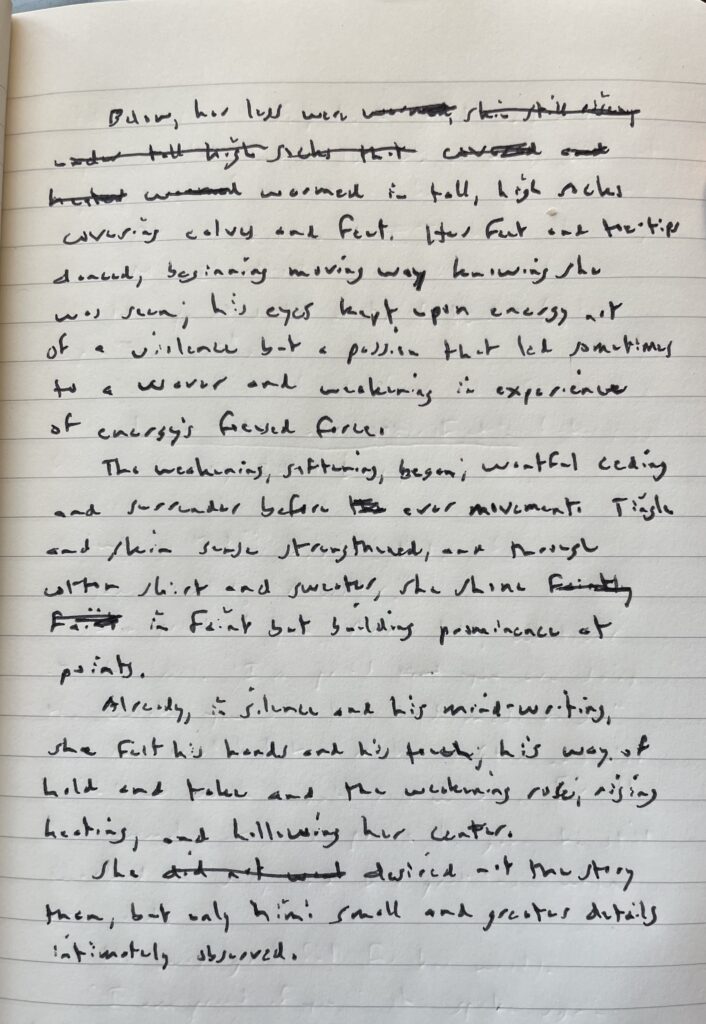 Below, her legs were warmed, skin still rising
under tall high socks that covered and
heated warmed warmed in tall, high socks
covering calves and feet. Her feet and toe-tips
danced, beginning moving way knowing she
was seen; his eyes kept upon energy not
of a violence but a passion that led sometimes
to a waver and weakening in experience
of energy's focused force.
The weakening, softening, began; wantful ceding
and surrender before ever movement. Tingle
and skin sense strengthened, and through
cotton shirt and sweater, she shone faintly
faint in faint but building prominence at
points.
Already, in silence and his mind-writing,
she felt his hands and his touch; his way of
hold and take and the weakening rose, rising
heating, and hollowing her center.
She did not want desired not the story
then, but only him: small and greater details
intimately observed.